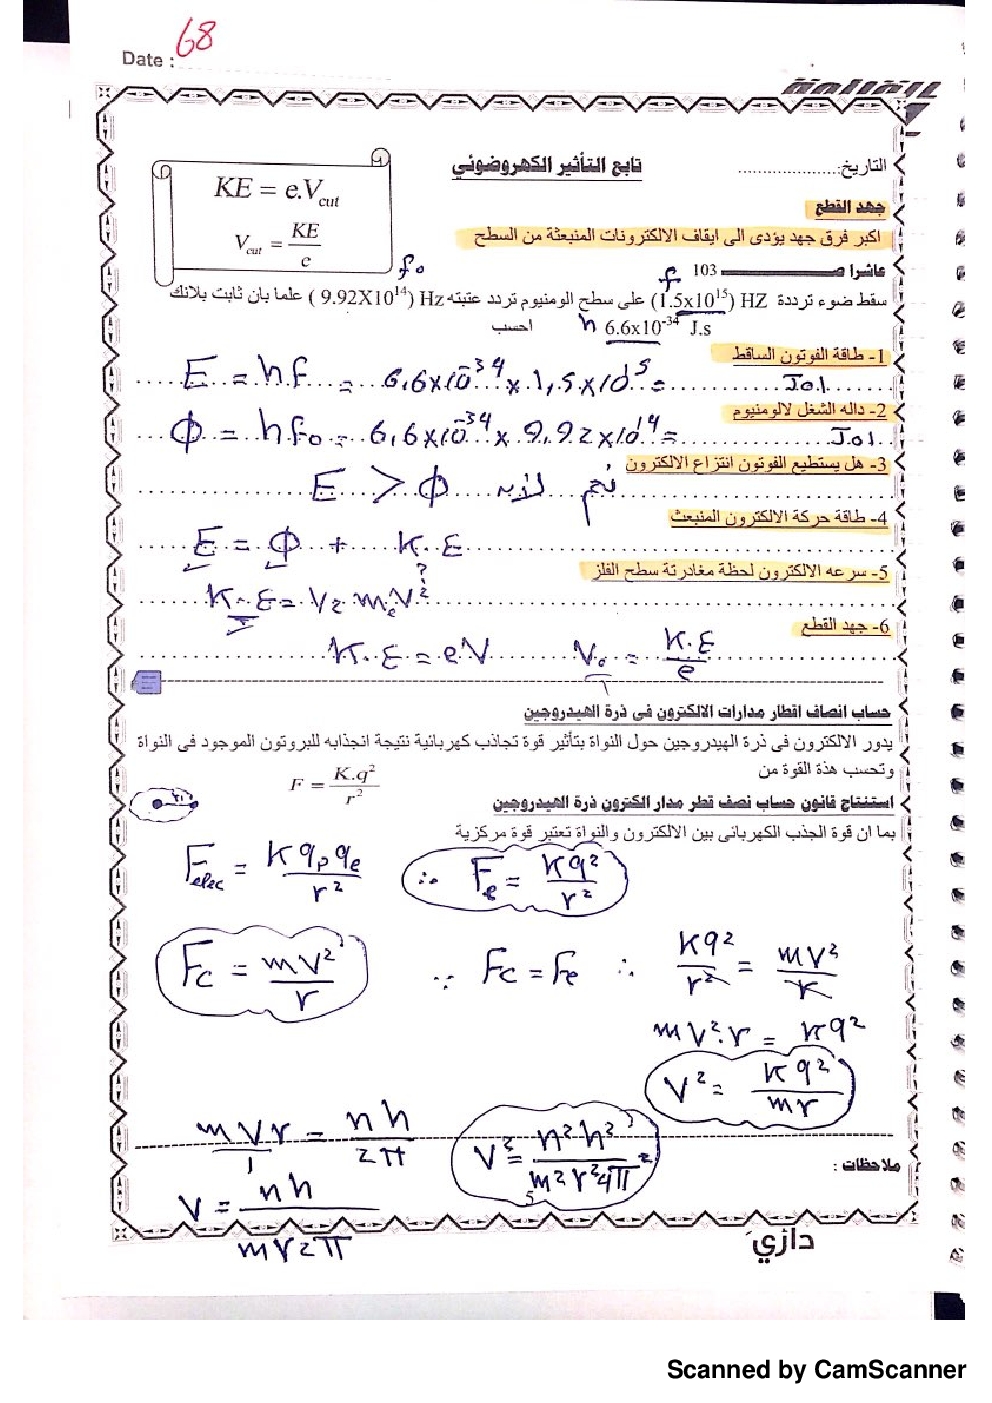 68
Date :
التاريخ:
تابع التأثير الكهروضوئي
KE = e.V_cut
V_cut = KE / e
جهد القطع
اكبر فرق جهد يؤدى الى ايقاف الالكترونات المنبعثة من السطح
عاشرا صـ 103
f f₀
سقط ضوء ترددة (1.5x10¹⁵) HZ على سطح الومنيوم تردد عتبته Hz (9.92X10¹⁴) علما بان ثابت بلانك
h 6.6x10⁻³⁴ J.s احسب
1- طاقة الفوتون الساقط
E = hf = 6,6x10⁻³⁴ x 1,5x10¹⁵ = Jol
2- داله الشغل لالومنيوم
Φ = hf₀ = 6,6x10⁻³⁴ x 9,92x10¹⁴ = Jol
3- هل يستطيع الفوتون انتزاع الالكترون
نعم لأنه E > Φ
4- طاقة حركة الالكترون المنبعث
E = Φ + K.E
5- سرعه الالكترون لحظة مغادرئة سطح الفلز
?
K.E = ½ mₑV²
6- جهد القطع
K.E = eV V₀ = K.E / e
حساب انصاف اقطار مدارات الالكترون فى ذرة الهيدروجين
يدور الالكترون فى ذرة الهيدروجين حول النواة بتأثير قوة تجاذب كهربائية نتيجة انجذابه للبروتون الموجود فى النواة
وتحسب هذة القوة من
F = K.q² / r²
استنتاج قانون حساب نصف قطر مدار الكترون ذرة الهيدروجين
بما ان قوة الجذب الكهربائى بين الالكترون والنواة تعتبر قوة مركزية
F_elec = K qₚ qₑ / r² ∴ Fₑ = Kq² / r²
Fc = mv² / r ∵ Fc = Fe ∴ Kq² / r² = mv² / r
mv².r = Kq²
V² = Kq² / mr
mvr / 1 = nh / 2π V² = n²h² / m²r²4π²
ملاحظات :
V = nh / mr2π
5
دازي
Scanned by CamScanner